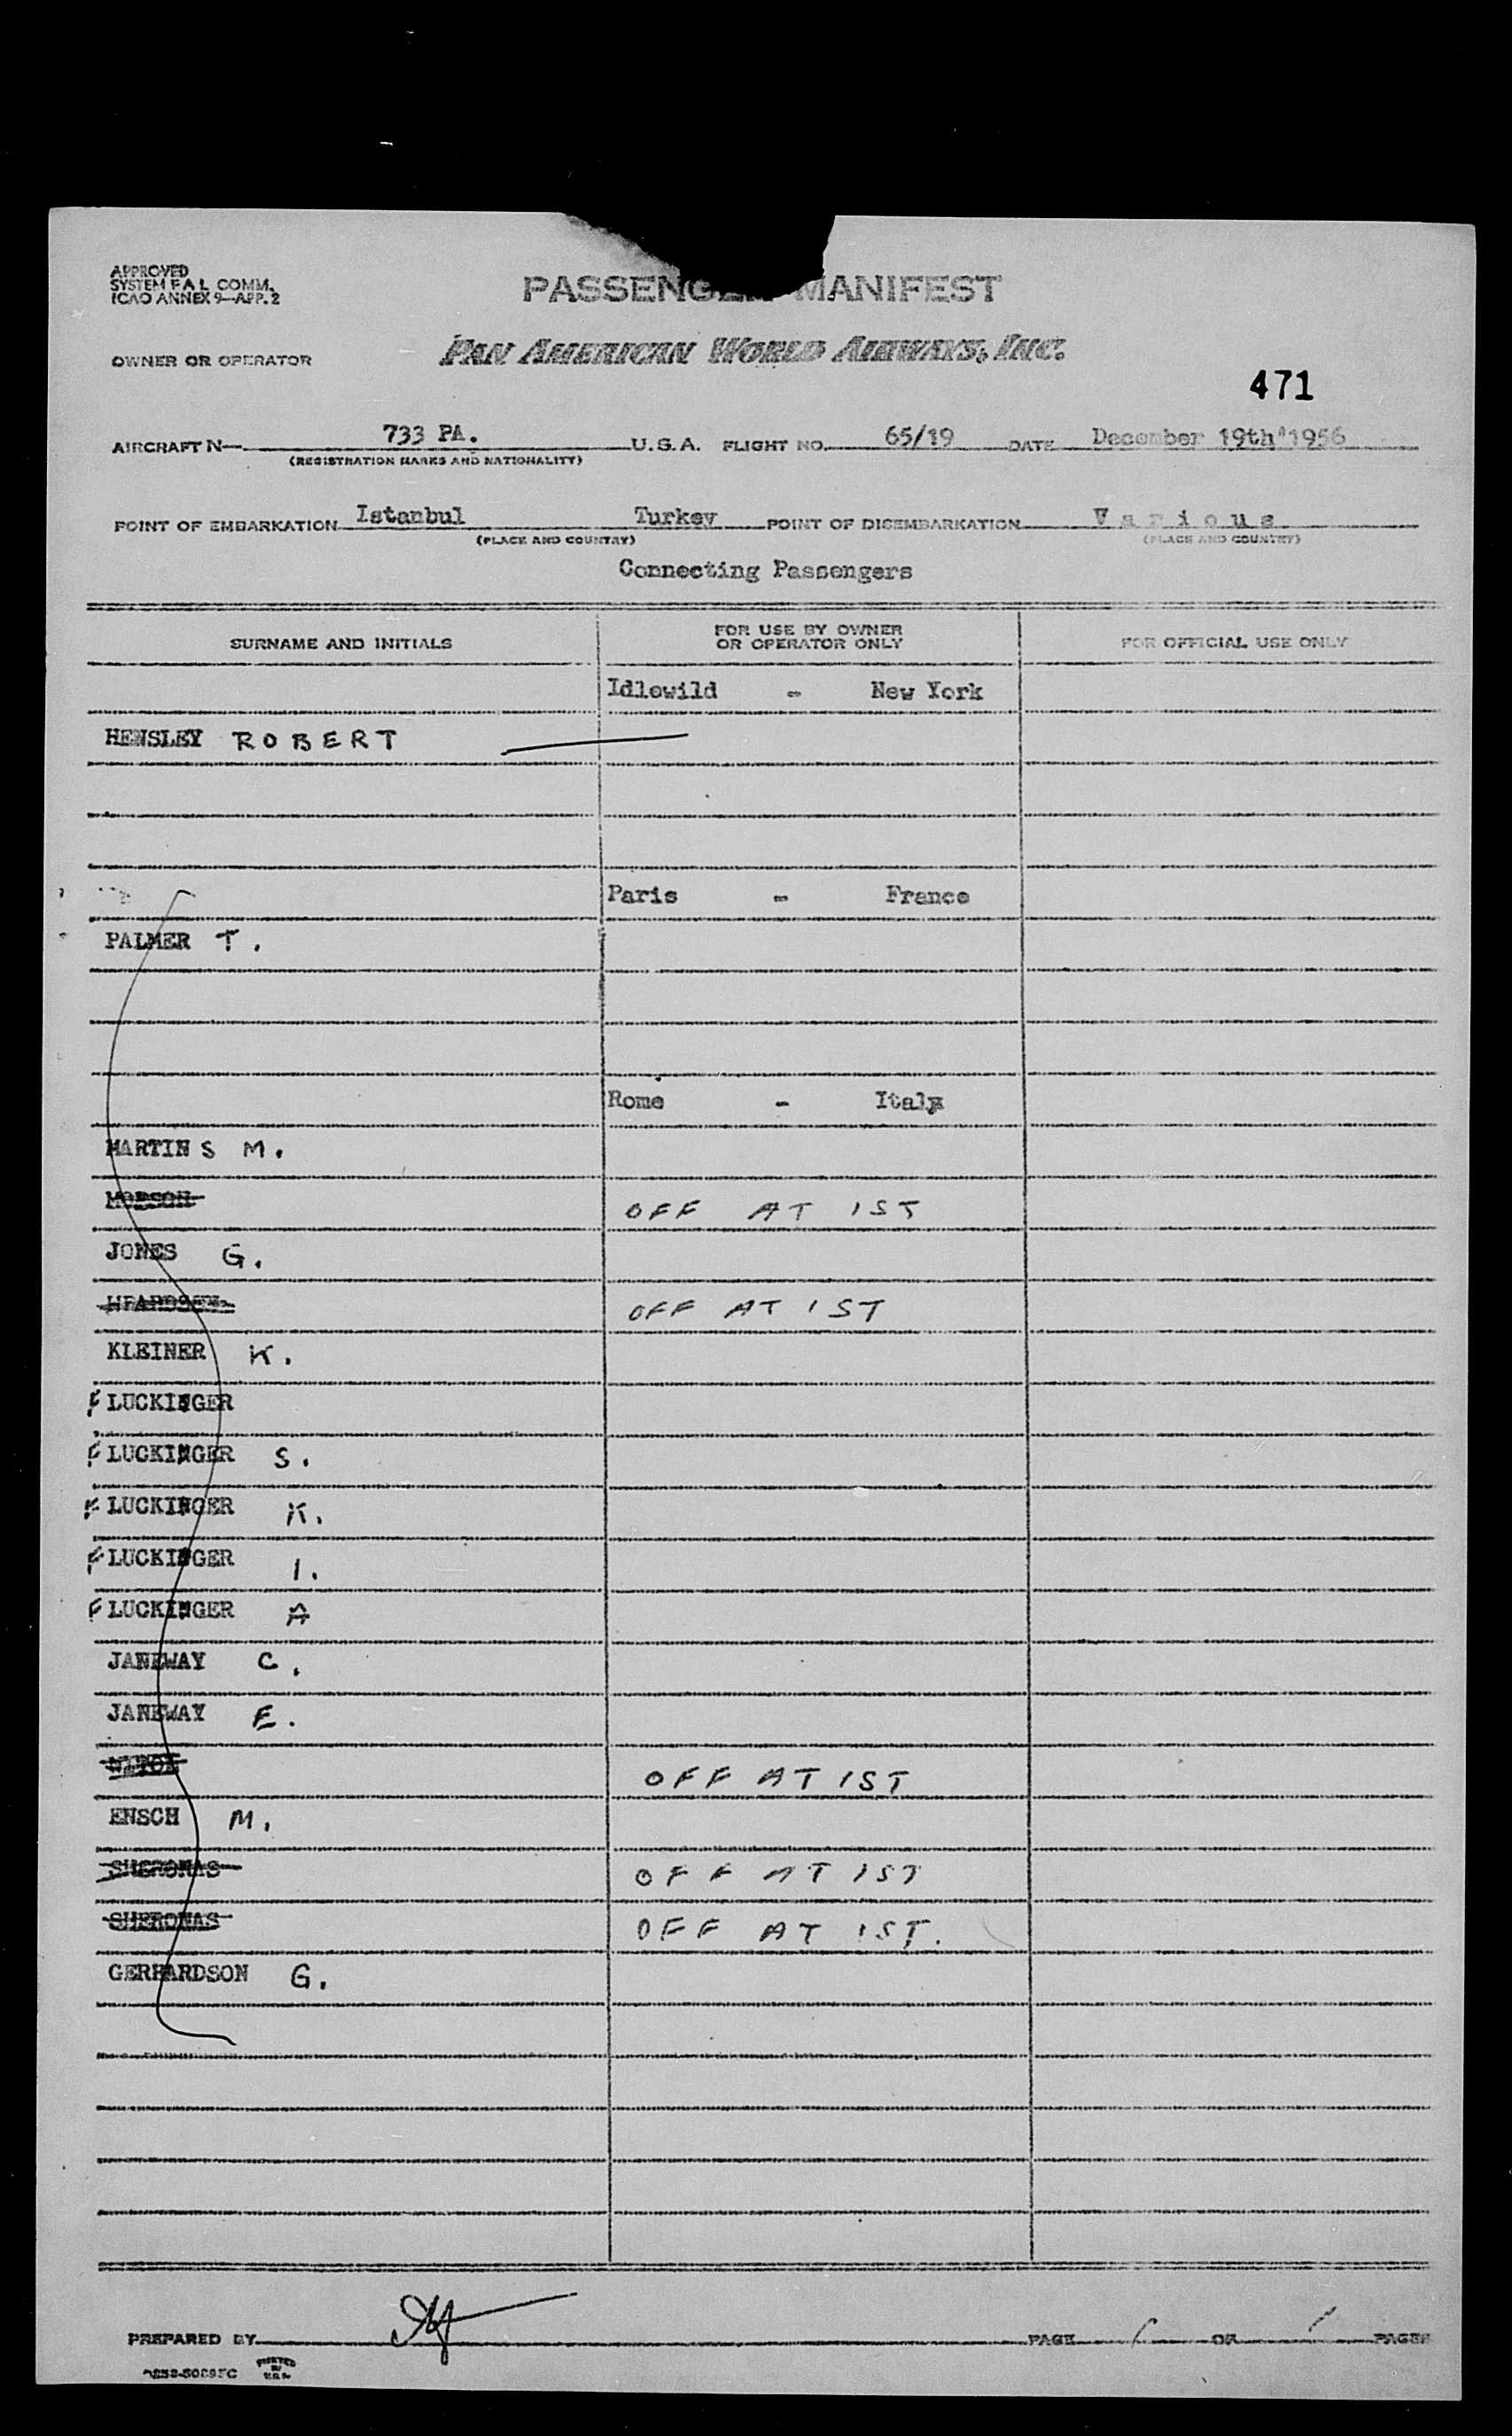 APPROVED
SYSTEM F A L COMM.
ICAO ANNEX 9—APP. 2
PASSENGER MANIFEST
OWNER OR OPERATOR PAN AMERICAN WORLD AIRWAYS, INC.
471
AIRCRAFT N— 733 PA. U.S.A. FLIGHT NO. 65/19 DATE December 19th 1956
(REGISTRATION MARKS AND NATIONALITY)
POINT OF EMBARKATION Istanbul Turkey POINT OF DISEMBARKATION Various
(PLACE AND COUNTRY) (PLACE AND COUNTRY)
Connecting Passengers
SURNAME AND INITIALS FOR USE BY OWNER OR OPERATOR ONLY FOR OFFICIAL USE ONLY
Idlewild - New York
HENSLEY ROBERT
Paris - France
PALMER T.
Rome - Italy
MARTINS M.
OFF AT IST
JONES G.
OFF AT IST
KLEINER K.
FLUCKINGER
FLUCKINGER S.
FLUCKINGER K.
FLUCKINGER I.
FLUCKINGER A
JANEWAY C.
JANEWAY E.
OFF AT IST
ENSCH M.
SHERONAS OFF AT IST
SHERONAS OFF AT IST.
GERHARDSON G.
PREPARED BY PAGE 1 OF 1 PAGES
PRINTED
IN
U.S.A.